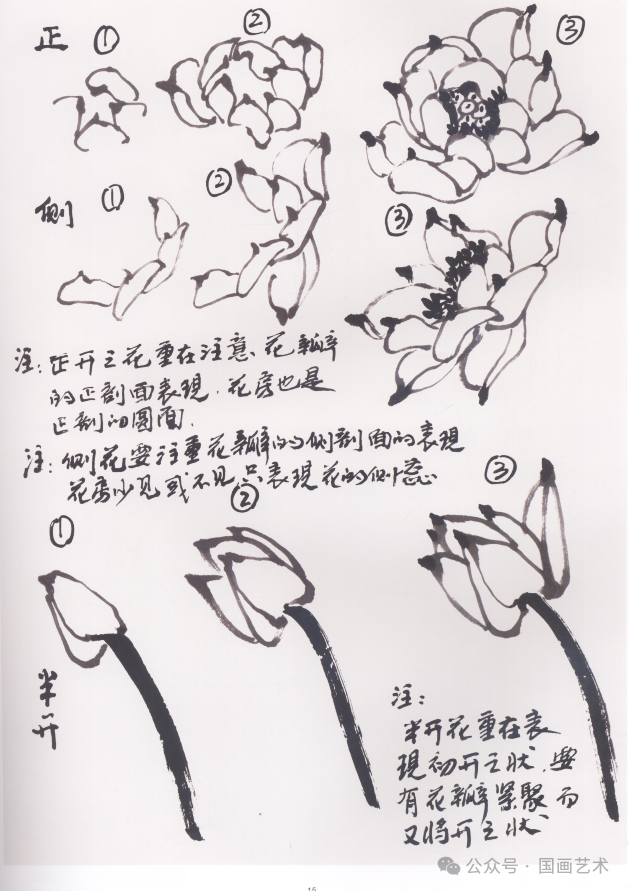 正 ① ② ③
侧 ① ② ③
注：正开之花重在注意、花瓣
的正剖面表現．花房也是
正剖的圆面．
注：侧花要注重花瓣的侧剖面的表現
花房少见或不见只表現花的侧蕊
① ② ③
半开
注：
半开花重在表
現初开之状．要
有花瓣紧聚而
又将开之状
公众号 · 国画艺术
15